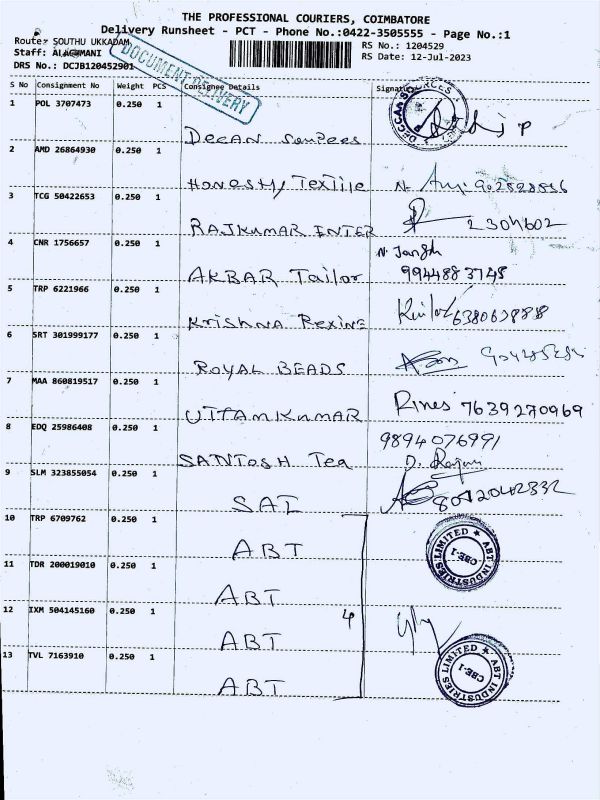 THE PROFESSIONAL COURIERS, COIMBATORE
Delivery Runsheet - PCT - Phone No.:0422-3505555 - Page No.:1
Route: SOUTHU UKKADAM
RS No.: 1204529
Staff: ALAGUMANI
RS Date: 12-Jul-2023
DRS No.: DCJB120452901
DOCUMENT DELIVERY
S No Consignment No Weight PCS Consignee Details Signature
1 POL 3707473 0.250 1
DeCAN Sources
2 AMD 26864930 0.250 1
Honesty Textile
3 TCG 50422653 0.250 1
RAJKUMAR INTER 2304602
4 CNR 1756657 0.250 1
N. Jangh
AKBAR Tailor 9944883748
5 TRP 6221966 0.250 1
Krishna Rexine 638063888
6 SRT 301999177 0.250 1
ROYAL BEADS
7 MAA 860819517 0.250 1
UTTAMKUMAR Dines 7639270969
8 EDQ 25986408 0.250 1
9894076991
SANTOSH Tea D. Rajan
9 SLM 323855054 0.250 1
SAI
10 TRP 6709762 0.250 1
ABT
ABT INDUSTRIES LIMITED CBE-1
11 TDR 200019010 0.250 1
ABT
12 IXM 504145160 0.250 1
4
ABT
13 TVL 7163910 0.250 1
ABT
ABT INDUSTRIES LIMITED CBE-1